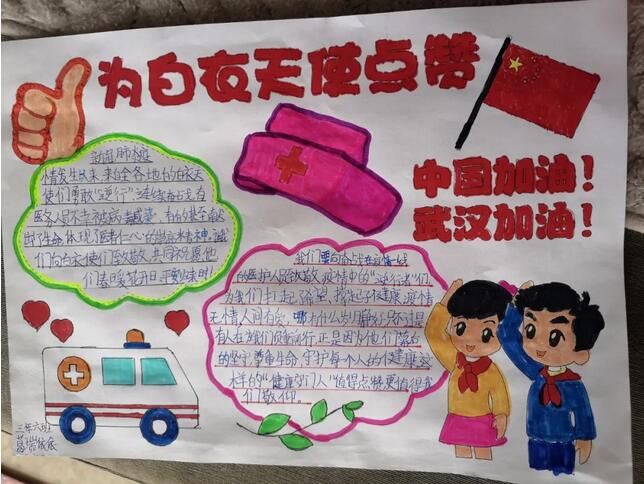 为白衣天使点赞
中国加油！
武汉加油！
新冠肺炎疫
情发生以来,来自全各地的白衣天
使们勇敢"逆行",连续奋战,有
医务人员不幸被病毒感染,有的甚至献
出了生命,体现了医者仁心的崇高精神,让我
们向白衣天使们致敬,共同祝愿他
们春暖花开日,平安归来时!
我们要向奋战在疫情一线
的医护人员致敬,疫情中的"逆行者"们,
为我们扛起希望,挡住不健康,疫情
无情人间有爱,哪有什么岁月静好,只不过是
有人在替们负重前行,正是因为他们
的坚守,尊重生命,守护每个人的健康,这
样的"健康守门人"值得点赞更值得我
们敬仰.
三年六班